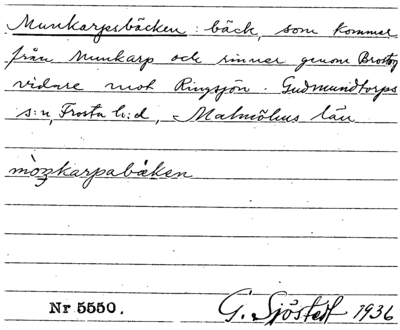 Munkarpsbäcken: bäck, som kommer
från Munkarp och rinner genom
vidare mot Ringsjön. Gudmundtorps
s:n, Frosta h:d, Malmöhus län
mòŋkarpabæken
Nr 5550.
G. Sjöstedt 1936